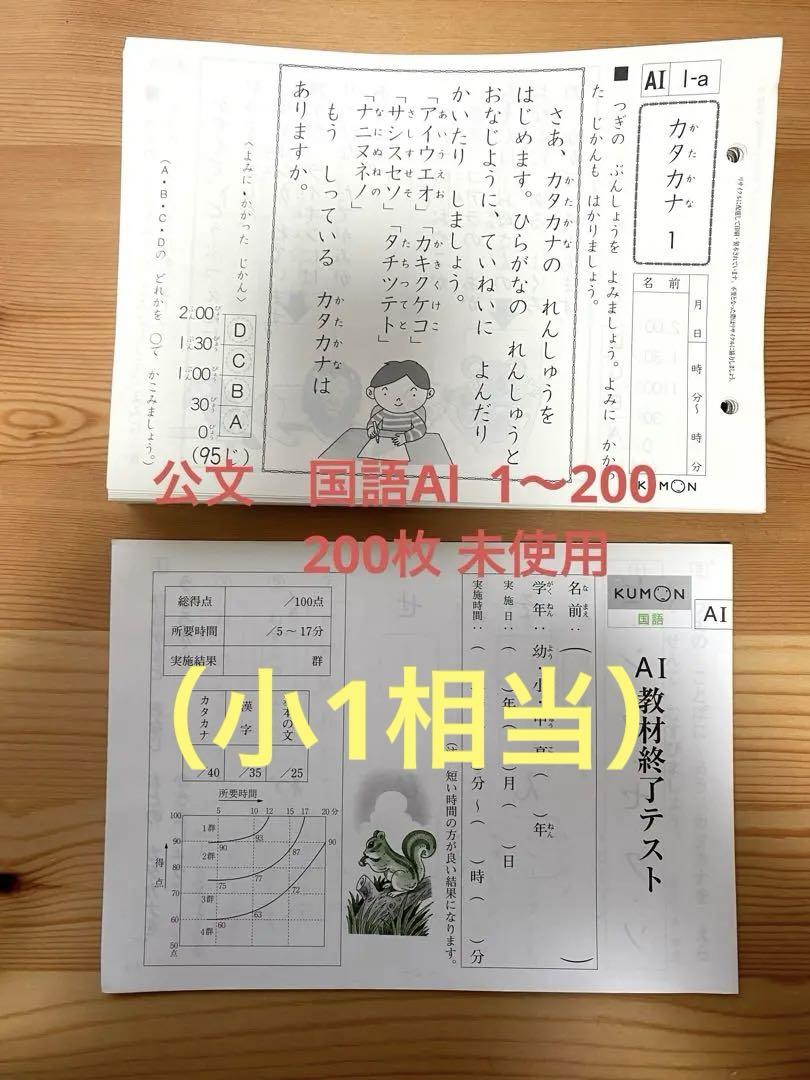 AI
1-a
カタカナ 1
かたかな
月 日
時 分~ 時 分
名前
KUMON
■ つぎの ぶんしょうを よみましょう。よみに かかっ
た じかんも はかりましょう。
さあ、カタカナの れんしゅうを
はじめます。ひらがなの れんしゅうと
おなじように、ていねいに よんだり
かいたり しましょう。
「アイウエオ」「カキクケコ」
「サシスセソ」「タチツテト」
「ナニヌネノ」
もう しっている カタカナは
ありますか。
〈よみに・かかった じかん〉
2分00秒
1分30秒
1分00秒
30秒
0秒
D
C
B
A
(95じ)
(A・B・C・Dの どれかを ○で かこみましょう。)
公文 国語AI 1〜200
200枚 未使用
(小1相当)
KUMON
国語
AI
AI教材終了テスト
名前:( )
学年:幼・小・中・高( )年
実施日:( )年( )月( )日
実施時間:( 分〜( )時( )分
短い時間の方が良い結果になります。
総得点 /100点
所要時間 /5〜17分
実施結果 群
カタカナ 漢字 基本の文
/40 /35 /25
所要時間
5 10 12 15 17 20分
得点
100
90
75
60
50点
1群
2群
3群
4群
90 93 87 90
75 77 72
60 63